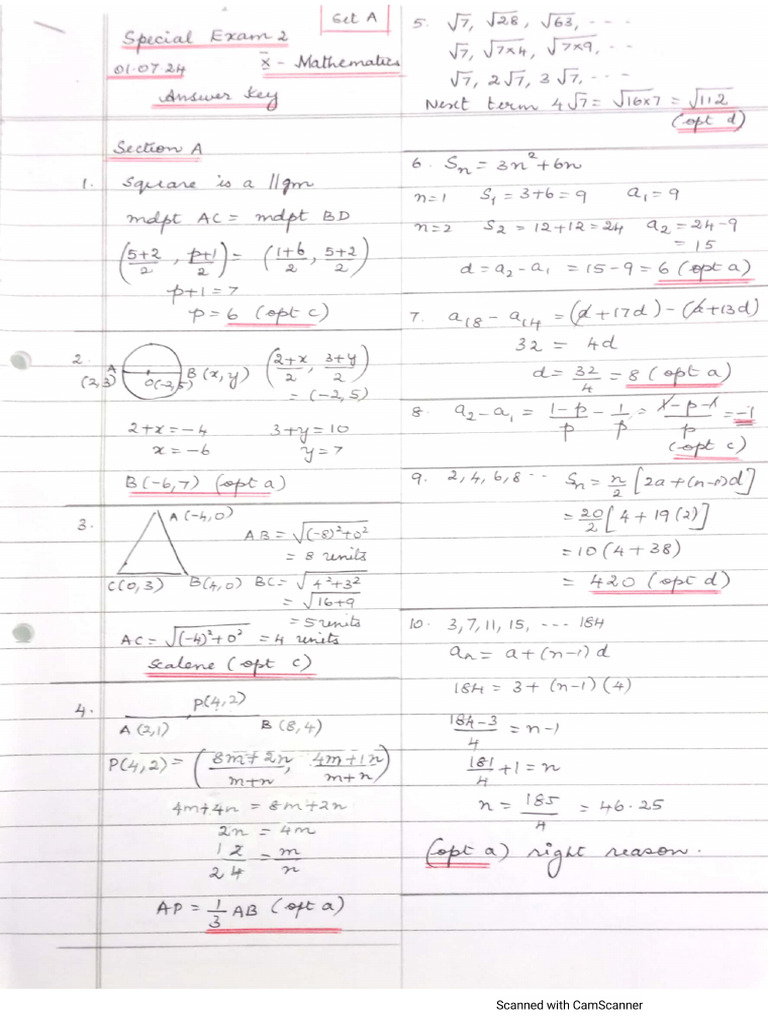 Set A
Special Exam 2
01.07.24 x̄ - Mathematics
Answer Key
Section A
1. Square is a ||gm
mdpt AC = mdpt BD
((5+2)/2, (p+1)/2) = ((1+6)/2, (5+2)/2)
p+1 = 7
p = 6 (opt c)
2. A (2,3) O(-2,5) B (x,y) ((2+x)/2, (3+y)/2)
= (-2,5)
2+x = -4 3+y = 10
x = -6 y = 7
B(-6,7) (opt a)
3. A(-4,0)
AB = √((-8)²+0²)
= 8 units
C(0,3) B(4,0) BC = √(4²+3²)
= √(16+9)
= 5 units
AC = √((-4)²+0²) = 4 units
Scalene (opt c)
4. P(4,2)
A(2,1) B(8,4)
P(4,2) = ((8m+2n)/(m+n), (4m+1n)/(m+n))
4m+4n = 8m+2n
2n = 4m
1 2/2 4 = m/n
AP = 1/3 AB (opt a)
5. √7, √28, √63, ...
√7, √(7×4), √(7×9), ..
√7, 2√7, 3√7, ...
Next term 4√7 = √(16×7) = √112
(opt d)
6. Sn = 3n²+6n
n=1 S1 = 3+6 = 9 a1 = 9
n=2 S2 = 12+12 = 24 a2 = 24-9
= 15
d = a2-a1 = 15-9 = 6 (opt a)
7. a18 - a14 = (a+17d) - (a+13d)
32 = 4d
d = 32/4 = 8 (opt a)
8. a2-a1 = (1-p)/p - 1/p = (1-p-1)/p = -1
(opt c)
9. 2, 4, 6, 8 .. Sn = n/2 [2a+(n-1)d]
= 20/2 [4+19(2)]
= 10(4+38)
= 420 (opt d)
10. 3, 7, 11, 15, ... 184
an = a+(n-1)d
184 = 3+(n-1)(4)
(184-3)/4 = n-1
181/4 + 1 = n
n = 185/4 = 46.25
(opt a) right reason.
Scanned with CamScanner